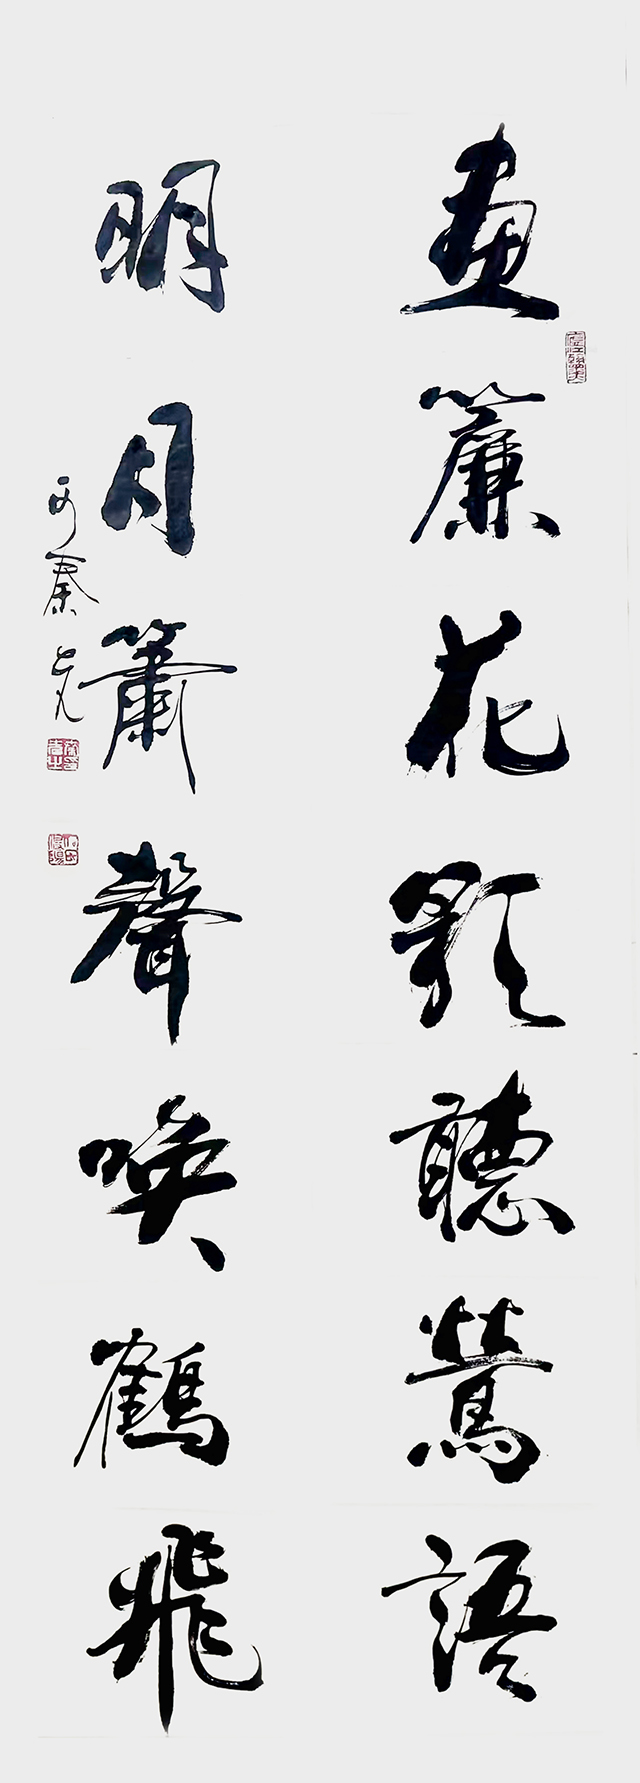 画簾花影聽鶯語
明月簫聲喚鶴飛